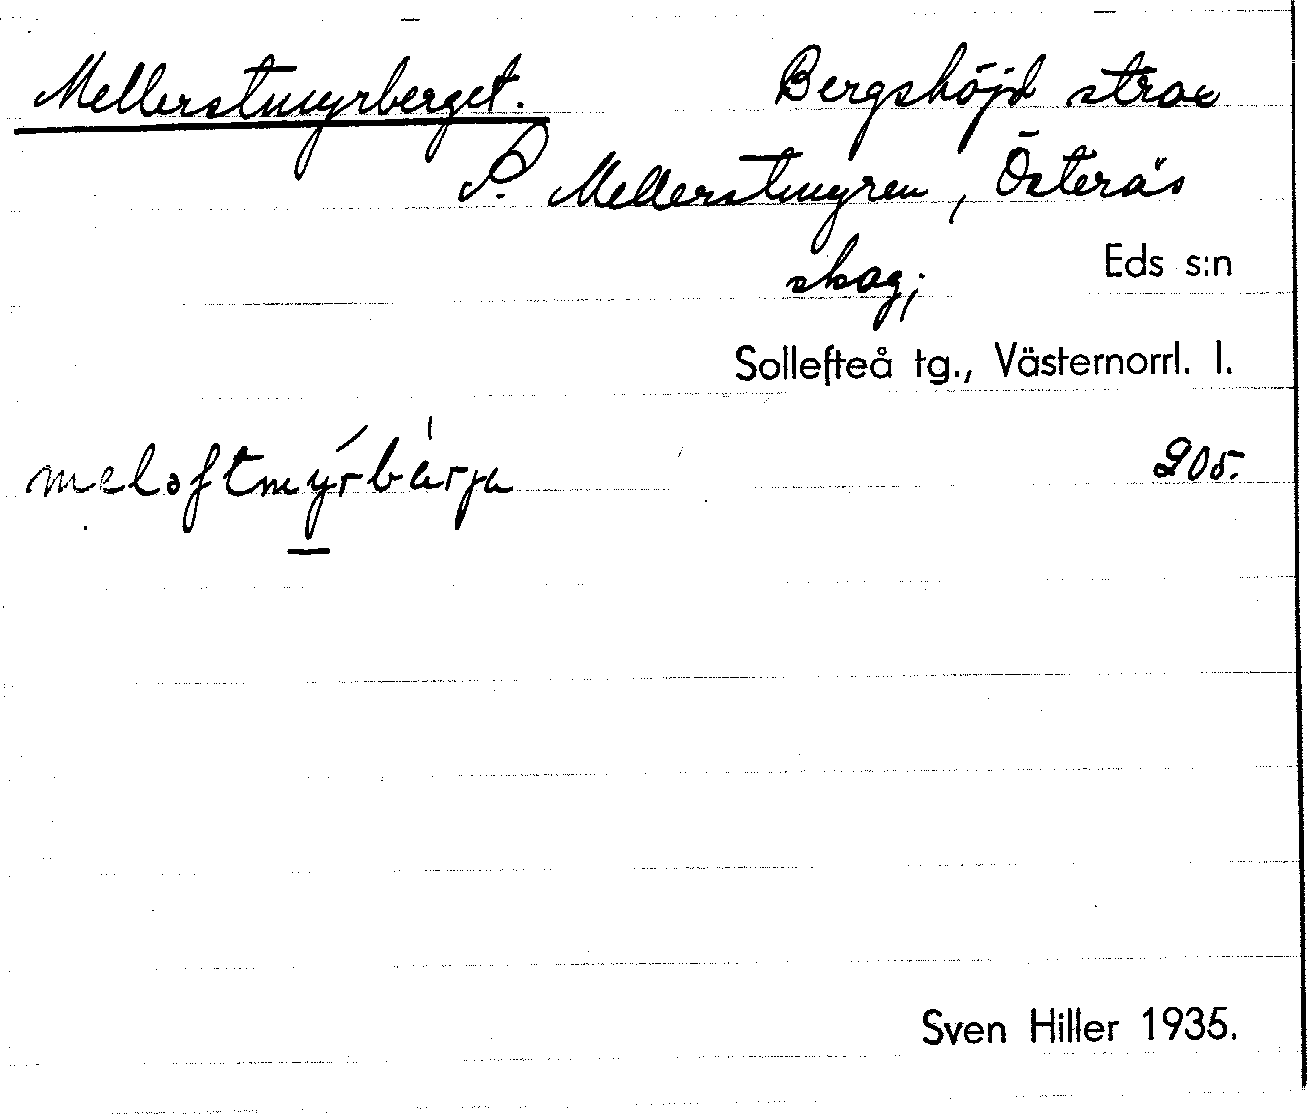 Mellerstmyrberget. Bergshöjd strax
S. Mellerstmyren, Österås
skog;
Eds s:n
Sollefteå tg., Västernorrl. l.
meləʃtmýrbàrja 205.
Sven Hiller 1935.